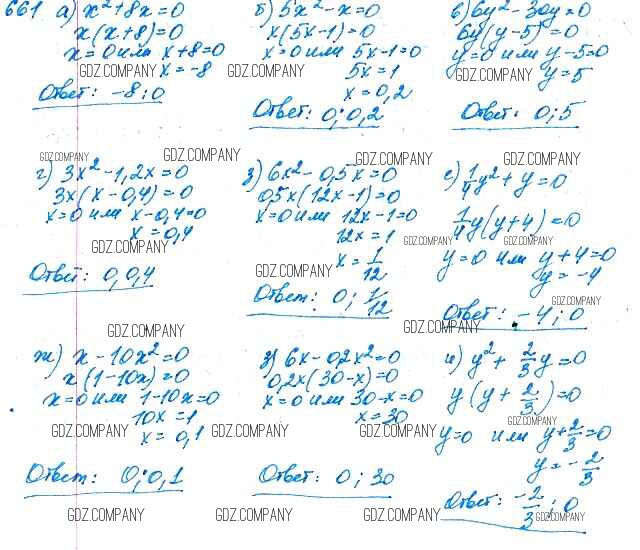 661 а) x²+8x=0
x(x+8)=0
x=0 или x+8=0
GDZ.COMPANY x=-8
Ответ: -8; 0
б) 5x²-x=0
x(5x-1)=0
x=0 или 5x-1=0
GDZ.COMPANY 5x=1
x=0,2
Ответ: 0; 0,2
в) 6y²-30y=0
6y(y-5)=0
y=0 или y-5=0
GDZ.COMPANY y=5
Ответ: 0; 5
GDZ.COMPANY
GDZ.COMPANY
GDZ.COMPANY
г) 3x²-1,2x=0
3x(x-0,4)=0
x=0 или x-0,4=0
x=0,4
GDZ.COMPANY
Ответ: 0, 0,4
д) 6x²-0,5x=0
0,5x(12x-1)=0
x=0 или 12x-1=0
12x=1
x=1/12
GDZ.COMPANY
Ответ: 0; 1/12
е) 1/4y²+y=0
1/4y(y+4)=0
GDZ.COMPANY GDZ.COMPANY
y=0 или y+4=0
y=-4
GDZ.COMPANY
Ответ: -4; 0
GDZ.COMPANY
GDZ.COMPANY
ж) x-10x²=0
x(1-10x)=0
x=0 или 1-10x=0
10x=1
GDZ.COMPANY x=0,1
Ответ: 0; 0,1
з) 6x-0,2x²=0
0,2x(30-x)=0
x=0 или 30-x=0
x=30
GDZ.COMPANY GDZ.COMPANY
Ответ: 0; 30
и) y²+2/3y=0
y(y+2/3)=0
GDZ.COMPANY
y=0 или y+2/3=0
y=-2/3
Ответ: -2/3; 0
GDZ.COMPANY GDZ.COMPANY GDZ.COMPANY GDZ.COMPANY